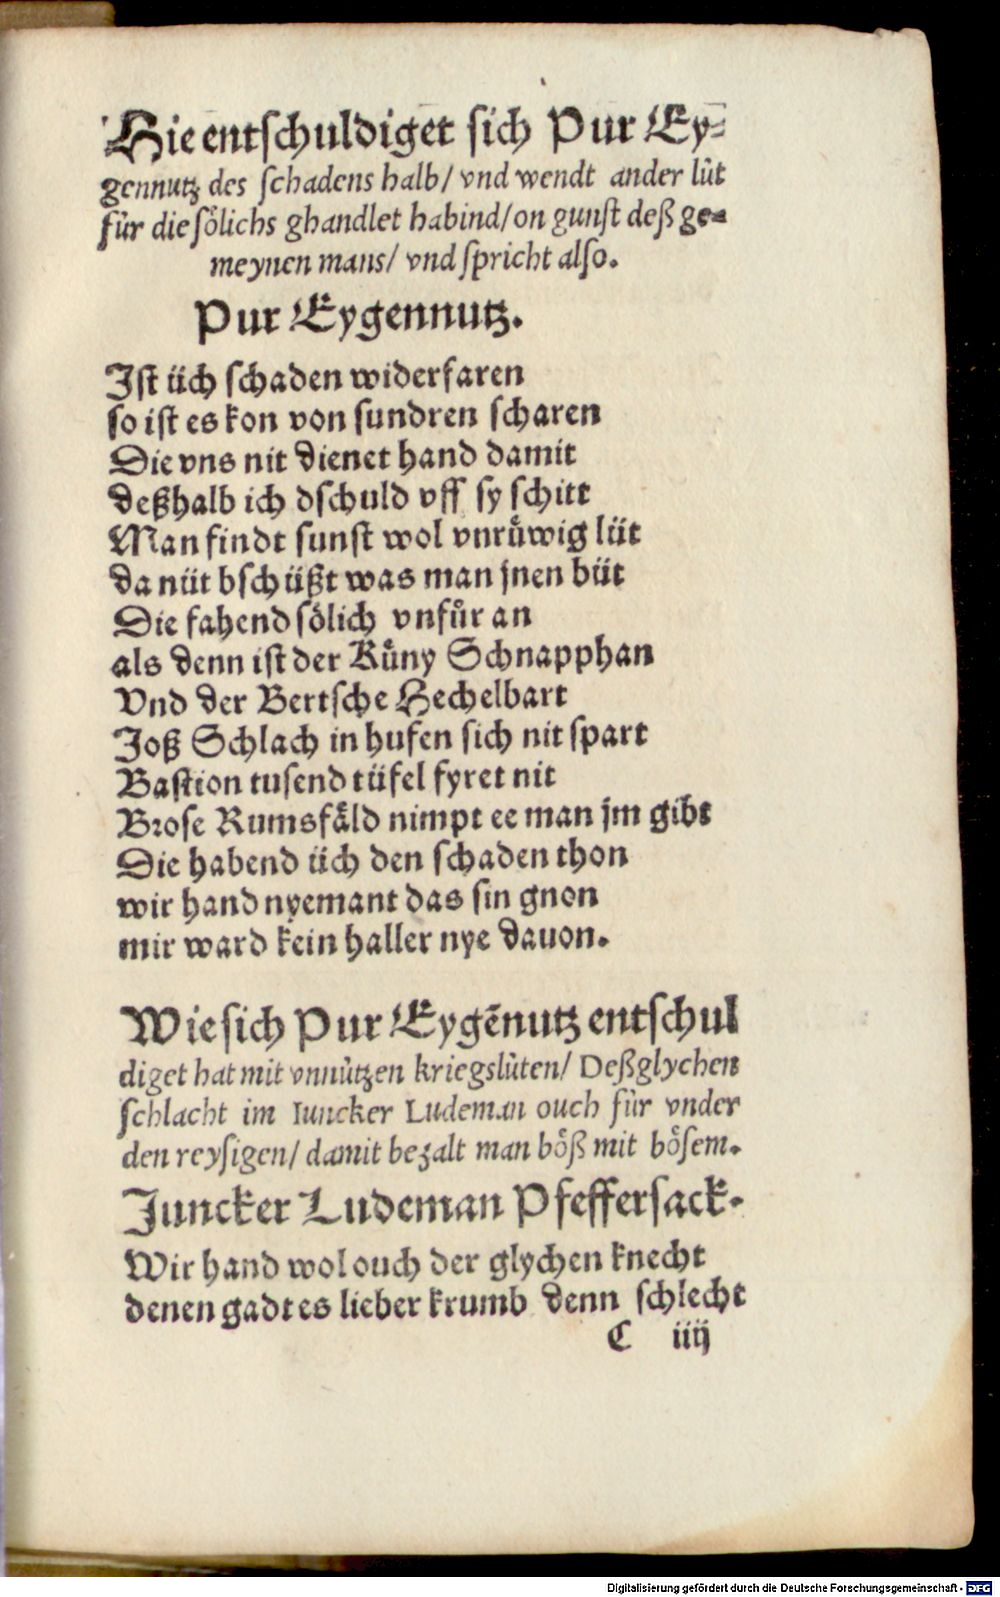 Hie entschuldiget sich Pur Ey-
gennutz des schadens halb/ vnd wendt ander lüt
für die soͤlichs ghandlet habind/ on gunst deß ge-
meynen mans/ vnd spricht also.
Pur Eygennutz.
Ist üch schaden widerfaren
so ist es kon von sundren scharen
Die vns nit dienet hand damit
deßhalb ich dschuld vff sy schitt
Man findt sunst wol vnruͤwig lüt
da nüt bschüßt was man jnen büt
Die fahend soͤlich vnfuͦr an
als denn ist der Kuͤny Schnapphan
Vnd der Bertsche Hechelbart
Joß Schlach in hufen sich nit spart
Bastion tusend tüfel fyret nit
Brose Rumsfaͤld nimpt ee man jm gibt
Die habend üch den schaden thon
wir hand nyemant das sin gnon
mir ward kein haller nye dauon.
Wie sich Pur Eygēnutz entschul
diget hat mit vnnützen kriegslüten/ Deßglychen
schlacht im Iuncker Ludeman ouch für vnder
den reysigen/ damit bezalt man boͤß mit boͤsem.
Juncker Ludeman Pfeffersack.
Wir hand wol ouch der glychen knecht
denen gadt es lieber krumb denn schlecht
C iiij
Digitalisierung gefördert durch die Deutsche Forschungsgemeinschaft - DFG